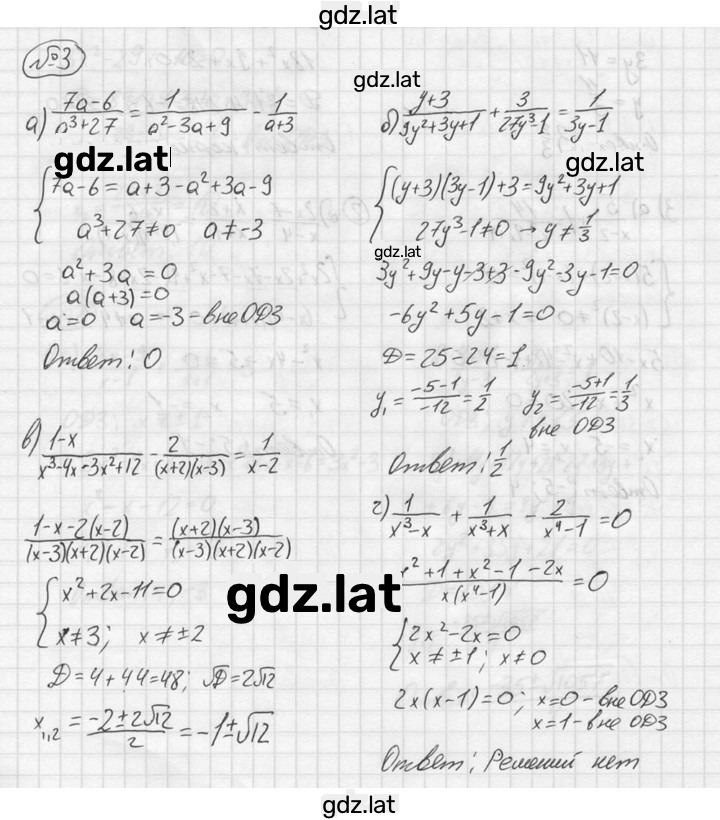 gdz.lat
№3
gdz.lat
а) (7a-6)/(a³+27) = 1/(a²-3a+9) - 1/(a+3)
gdz.lat
{ 7a-6 = a+3-a²+3a-9
a³+27≠0 a≠-3
a²+3a = 0
a(a+3)=0
a=0 a=-3 = вне ОДЗ
Ответ: 0
б) (y+3)/(9y²+3y+1) + 3/(27y³-1) = 1/(3y-1)
gdz.lat
{ (y+3)(3y-1)+3=9y²+3y+1
27y³-1≠0 → y≠1/3
gdz.lat
3y²+9y-y-3+3-9y²-3y-1=0
-6y²+5y-1=0
D=25-24=1
y₁ = (-5-1)/-12 = 1/2 y₂ = (-5+1)/-12 = 1/3
вне ОДЗ
Ответ: 1/2
в) (1-x)/(x³-4x-3x²+12) - 2/((x+2)(x-3)) = 1/(x-2)
(1-x-2(x-2))/((x-3)(x+2)(x-2)) = ((x+2)(x-3))/((x-3)(x+2)(x-2))
gdz.lat
{ x²+2x-11=0
x≠3; x≠±2
D=4+44=48; √D=2√12
x₁,₂ = (-2±2√12)/2 = -1±√12
г) 1/(x³-x) + 1/(x³+x) - 2/(x⁴-1) = 0
(x²+1+x²-1-2x)/(x(x⁴-1)) = 0
{ 2x²-2x=0
x≠±1; x≠0
2x(x-1)=0; x=0 - вне ОДЗ
x=1 - вне ОДЗ
Ответ: Решений нет
gdz.lat